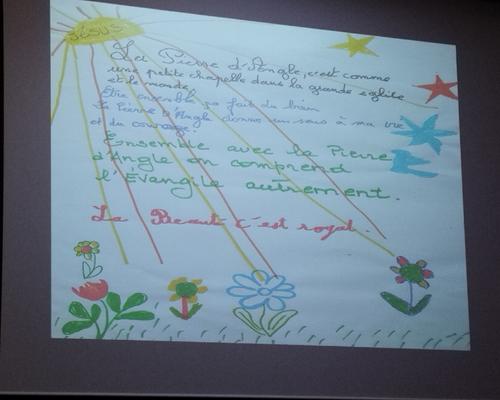 JÉSUS
La Pierre d'Angle, c'est comme
une petite chapelle dans la grande église
et le monde.
Etre ensemble ça fait du bien
La Pierre d'Angle donne un sens à ma vie
et du courage!
Ensemble avec la Pierre
d'Angle on comprend
l'Évangile autrement.
Le c'est royal.